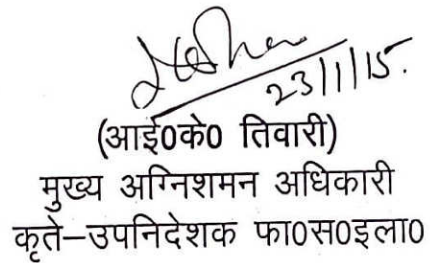 23/1/15.
(आई0के0 तिवारी)
मुख्य अग्निशमन अधिकारी
कृते–उपनिदेशक फा0स0इला0